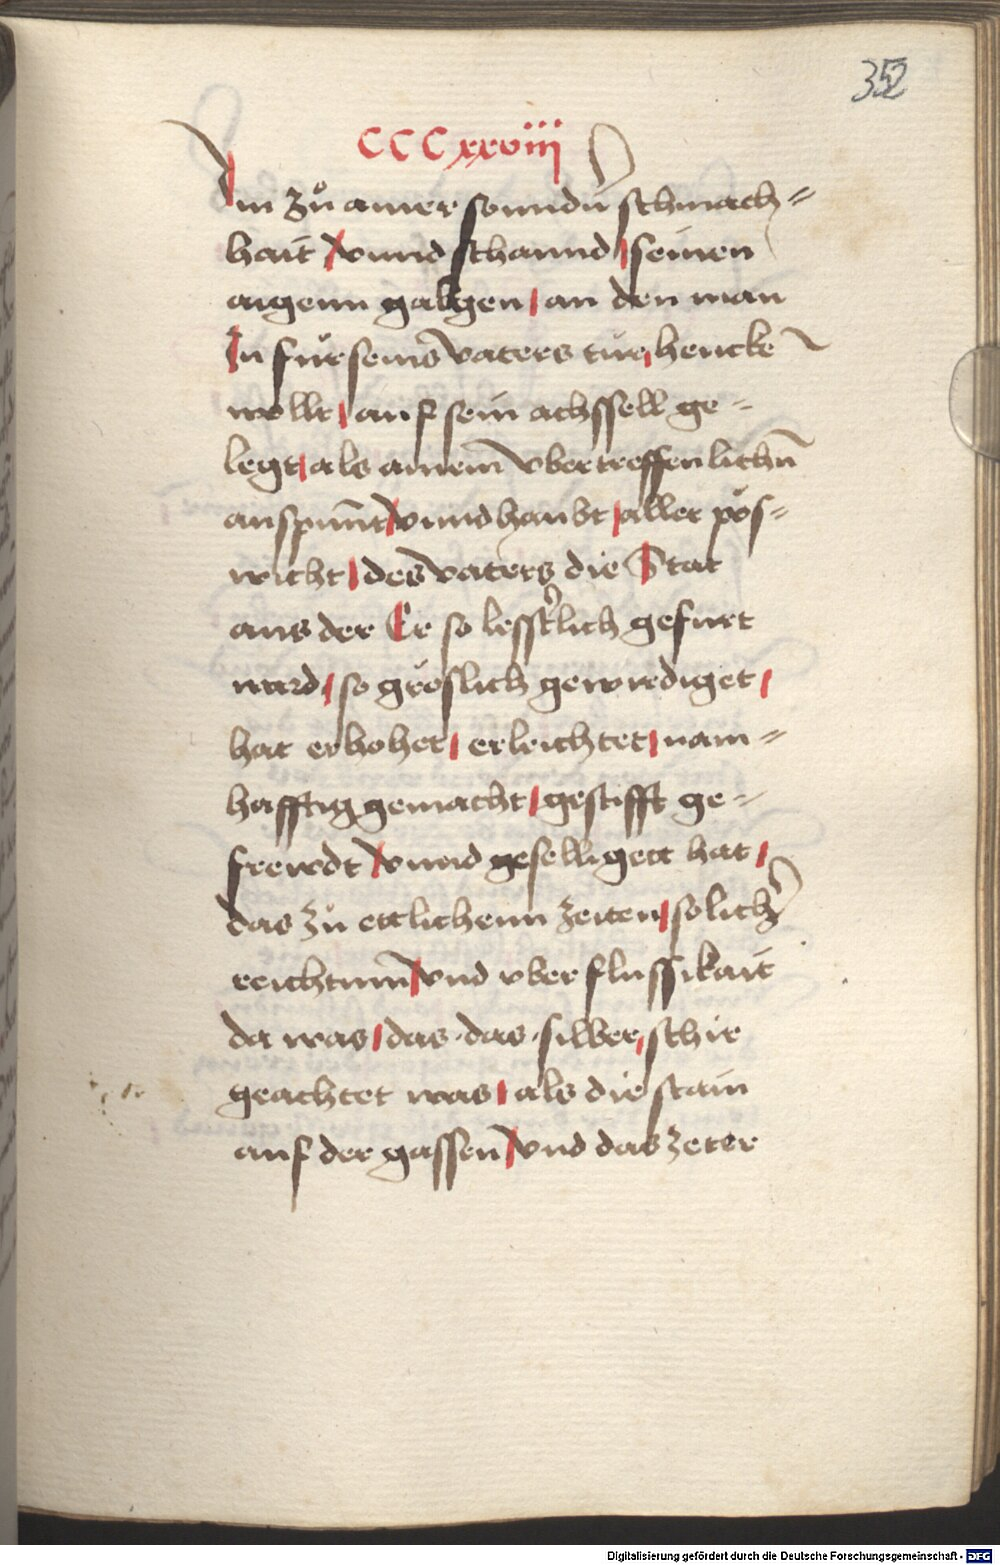 352
CCCxxviiij
Im zů ainer sonndern̄ schmach=
hait vnnd schannd seinen
aigenn galgen an den man
In für seins vaters tür hencken
wollt auf sein achssell ge=
legt als ainem̄ vbertreffenlichn̄
anspünnt vnnd haubt aller pös=
wicht des vaters die Stat
aus der Er so lesst'lich gefurt
ward so gröslich gewirdiget
hat erhohet erleichtet nam=
hafftig gemacht gestifft ge=
frewdt vnnd geselligett hat
das zů ettlichenn zeiten solich'
reichtum̄ vnd vberflussikait
da was das das silber schir
geachtet was als die stain
auf der gassen vnd das zeter
Digitalisierung gefördert durch die Deutsche Forschungsgemeinschaft - DFG